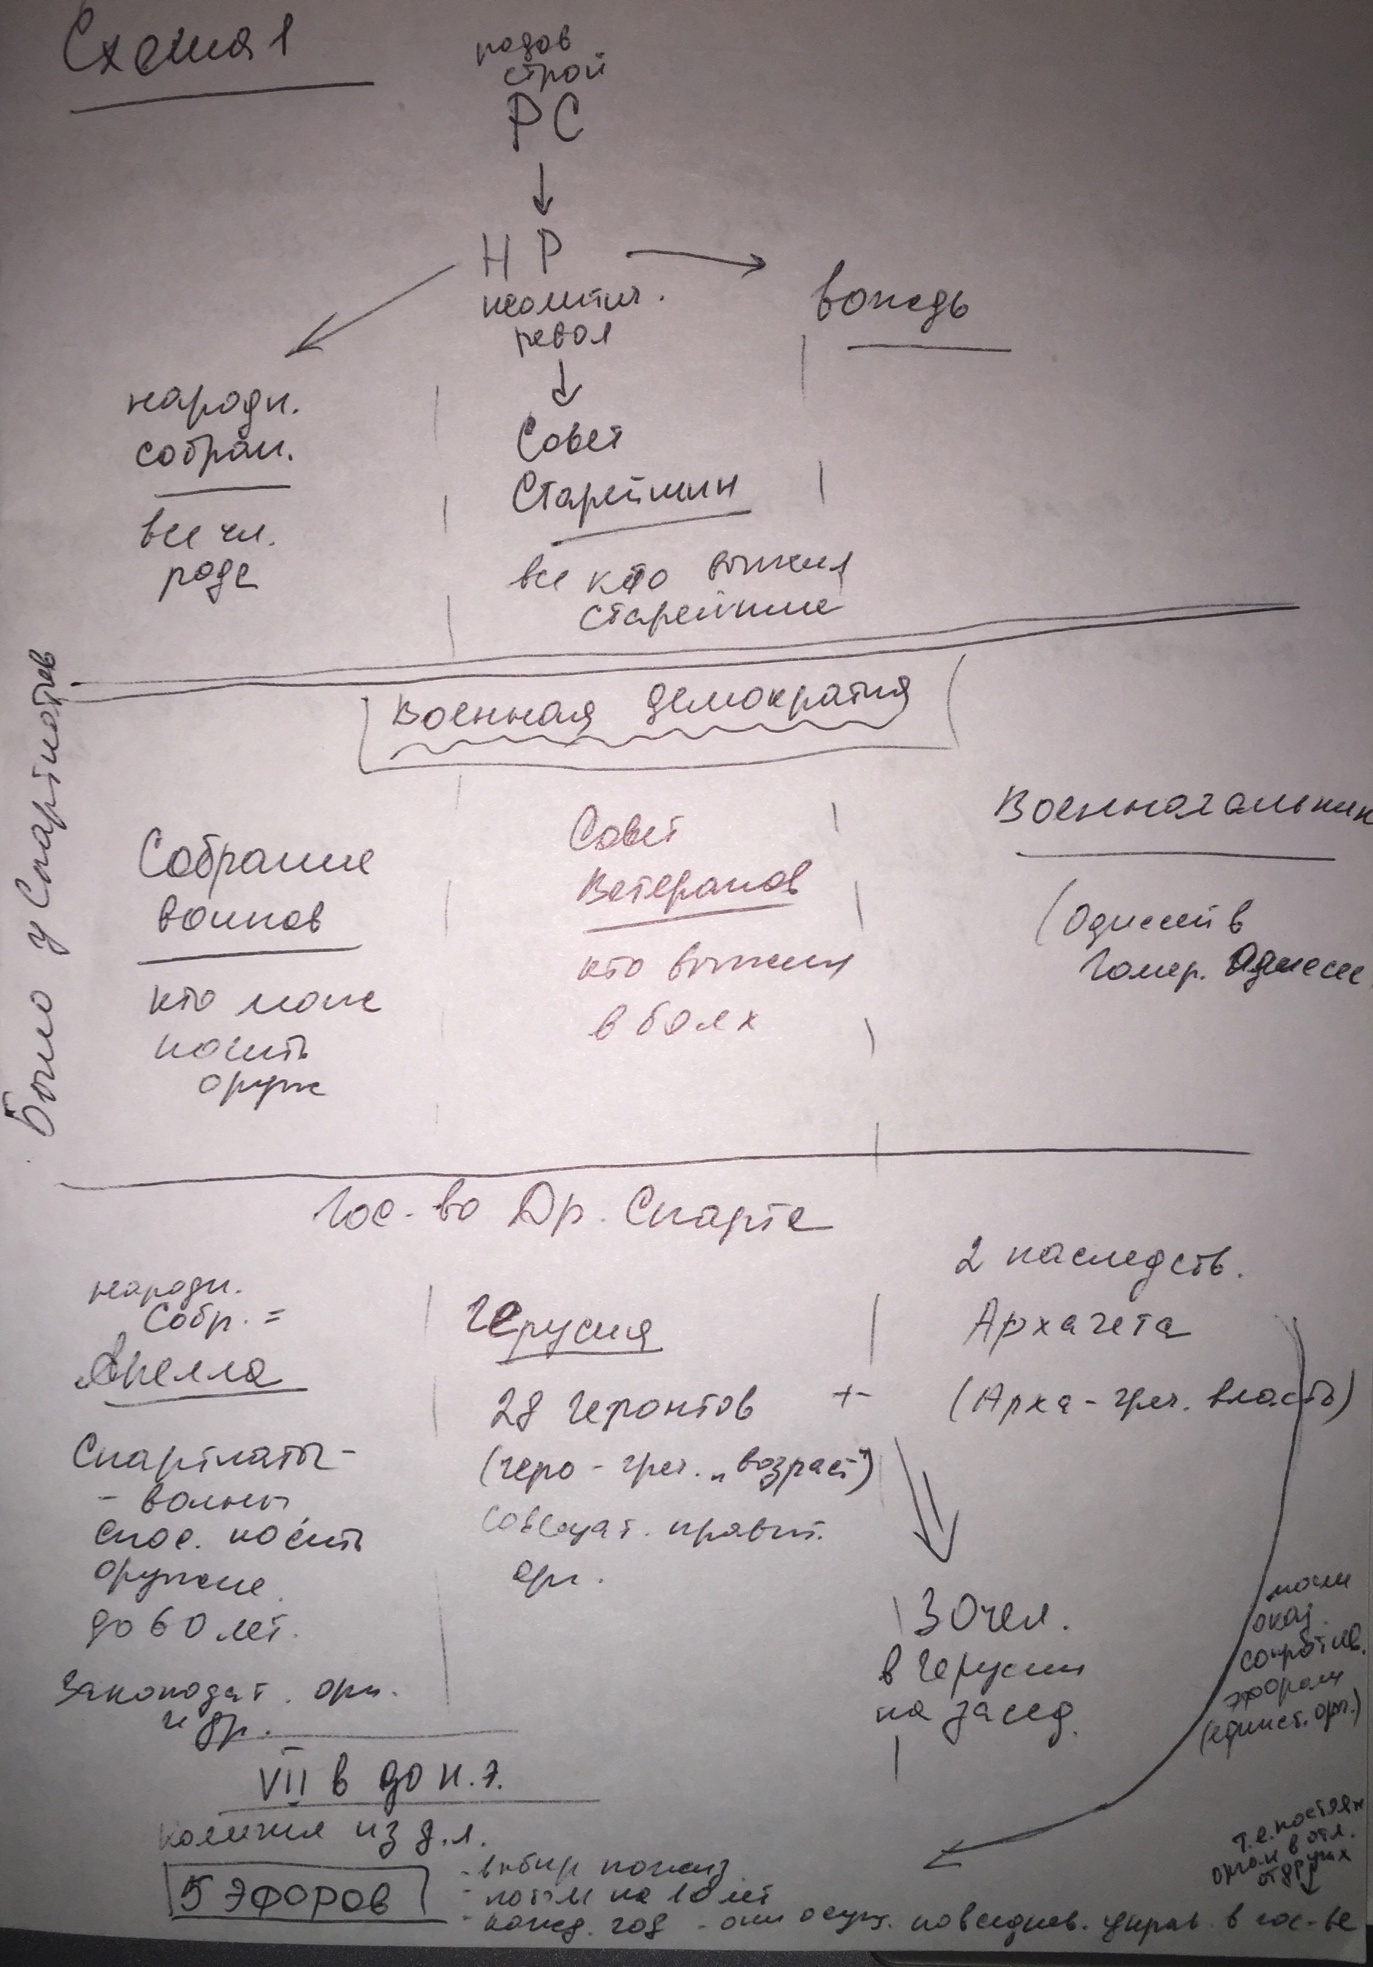 Схема 1
родов
строй
РС
НР
неолитич.
револ
вождь
народн.
собран.
все чл.
рода
Совет
Старейшин
все кто выжил
старейшие
Было у Спартиатов
Военная демократия
Собрание
воинов
кто може
носить
оруж
Совет
Ветеранов
кто выжил
в боях
Военночальник
(Одиссей в
Гомер. Одиссее
Гос-во Др. Спарта
народн.
собр. =
Апелла
Спартиаты -
- воины
спос. носить
оружие
до 60 лет.
Законодат. орг.
и др.
Герусия
28 геронтов +
(геро - греч. „возраст")
совещат. правит.
орг.
2 наследств.
Архагета
(Арха - греч. власть)
30 чел.
в Герусии
на засед.
могли
оказ.
сопротив.
эфорам
(единст. орг.)
VII в до н.э.
коллегия из д.л.
5 ЭФОРОВ
- выбир пожиз
- потом на 10 лет
- кажд. год - они осущ. повседнев. управ. в гос-ве
т.е. постоян
орган в отл.
от других